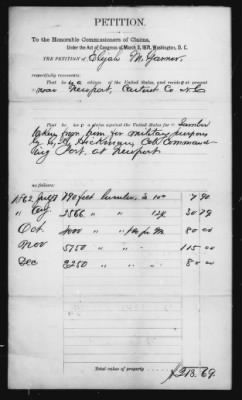 PETITION.
To the Honorable Commissioners of Claims,
Under the Act of Congress of March 3, 1871, Washington, D. C.
THE PETITION of Elijah M. Garner
respectfully represents:
That he is a citizen of the United States, and resides at present
near Newport, Carteret Co N Co
That he has a claim against the United States for Lumber
taken from him for military purposes
by Col Command
ing Post at Newport
as follows:
1862 July 790 feet lumber 10 7 90
" Aug. 2566 " " 12 30 79
Oct. 4000 " " pr M 80 00
Nov 5750 " " 115 00
Dec 8250 " " 80 00
Total value of property
$313.69